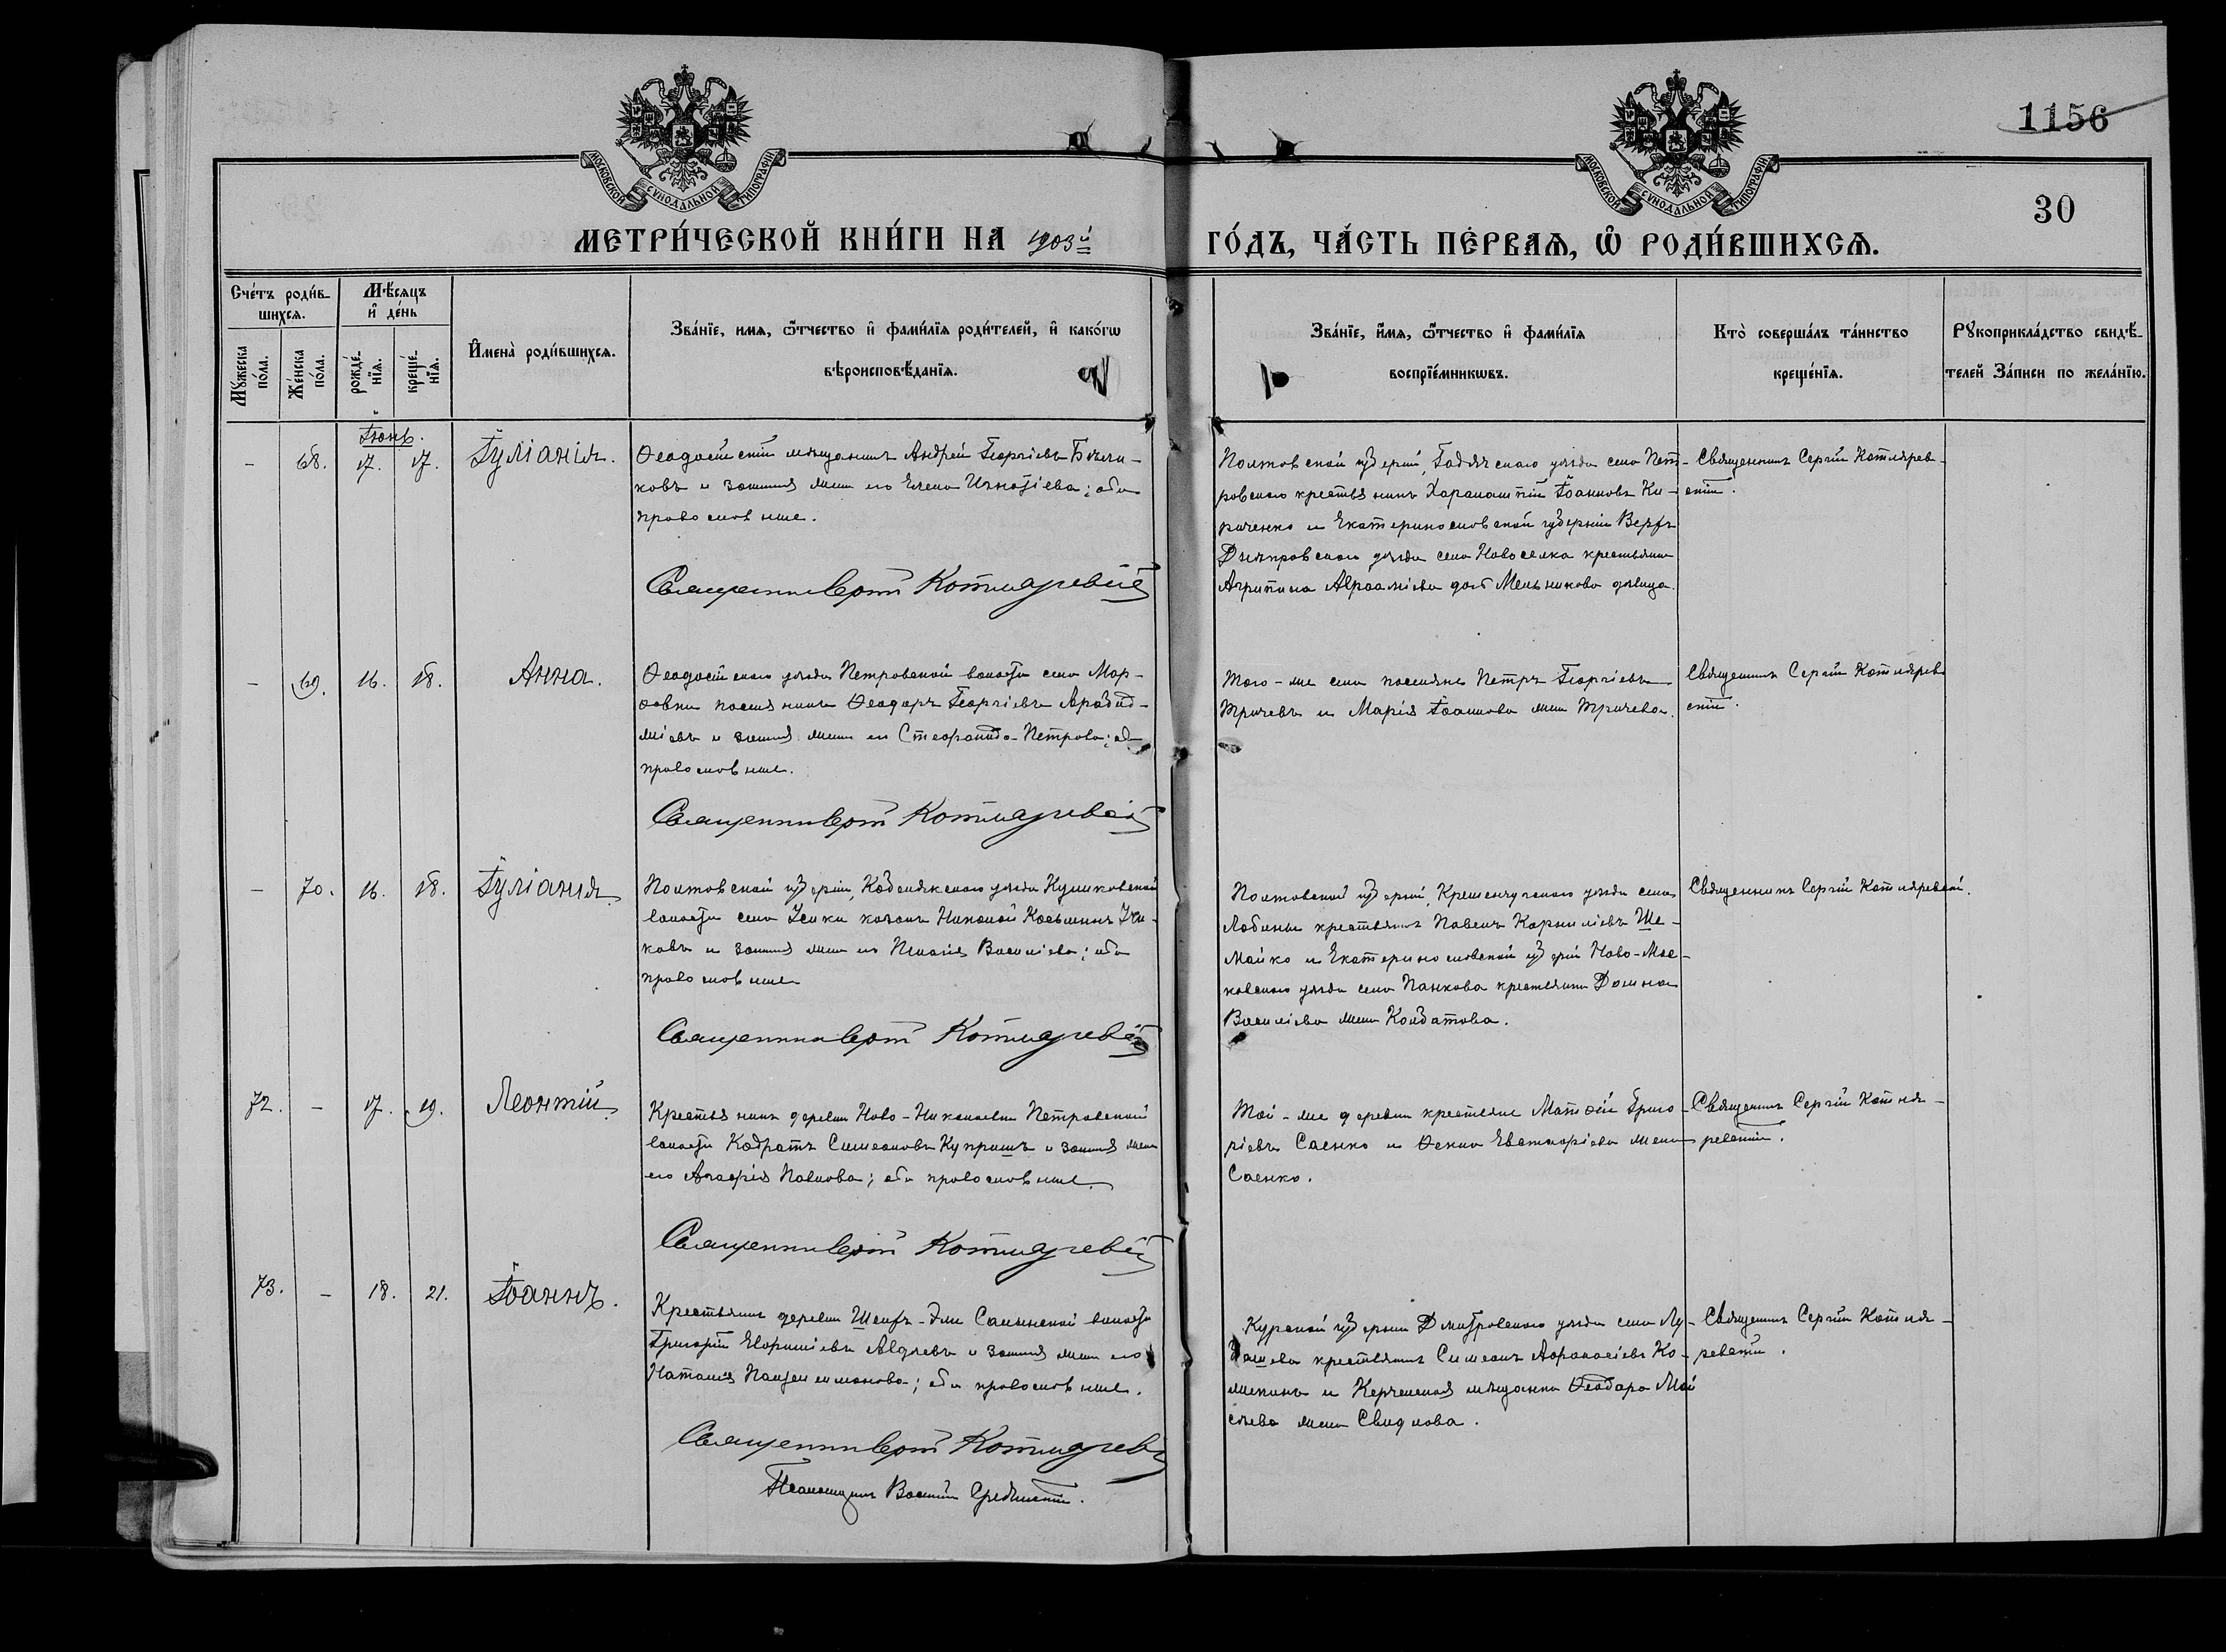 МОСКОВСКОЙ СѴНОДАЛЬНОЙ ТИПОГРАФІИ
МОСКОВСКОЙ СѴНОДАЛЬНОЙ ТИПОГРАФІИ
1156
30
МЕТРИ́ЧЕСКОЙ КНИ́ГИ НА 1903й
ГО́ДЪ, ЧА́СТЬ ПЕ́РВАѦ, Ѡ҆ РОДИ́ВШИХСѦ.
Сче́тъ роди́в-
шихсѧ.
Мꙋ́жеска по́ла.
Же́нска по́ла.
Мѣ́сѧцъ
и҆ де́нь
рожде́-
нїѧ.
креще́-
нїѧ.
И҆мена̀ роди́вшихсѧ.
Зва́нїе, имѧ, ѻ҆́тчество и҆ фами́лїѧ роди́телей, и҆ како́гѡ
вѣроисповѣ́данїѧ.
Зва́нїе, и҆́мѧ, ѻ҆́тчество и҆ фами́лїѧ
воспрїе́мникѡвъ.
Кто̀ соверша́лъ та́инство
креще́нїѧ.
Рꙋкоприкла́дство свидѣ́-
телей За́писи по жела́нїю.
Іюнь.
- 68. 17. 17. Іуліанія.
Ѳеодосійскій мѣщанинъ Андрей Георгіевъ Бѣли-
ковъ и законная жена его Елена Игнатіева; оба
православные.
Священникъ Сергій Котляревскій
Полтавской губерніи, Гадячскаго уѣзда села Пет-
ровскаго крестьянинъ Харалампій Іоанновъ Ки-
риченко и Екатеринославской губерніи Верхне-
Днѣпровскаго уѣзда села Новоселка крестьянка
Агрипина Авраамиева дочь Мельникова дѣвица.
Священникъ Сергій Котлярев-
скій.
- 69. 16. 18. Анна.
Ѳеодосійскаго уѣзда Петровской волости села Мар-
фовки поселянинъ Ѳеодоръ Георгіевъ
и законная жена его Стефанида Петрова; оба
православные.
Священникъ Сергій Котляревскій
Того-же села поселяне Петръ Георгіевъ
Тричевъ и Марія Іоаннова жена Тричева.
Священникъ Сергій Котлярев-
скій.
- 70. 16. 18. Іуліанія
Полтавской губерніи, Кобелякскаго уѣзда Куликовской
волости села казакъ Николай Косьминъ
и законная жена его Пелагія Василіева; оба
православные
Священникъ Сергій Котляревскій
Полтавской губерніи, Кременчугскаго уѣзда села
крестьянинъ Павелъ Корниліевъ Ше-
майко и Екатеринославской губерніи Ново-Мос-
ковскаго уѣзда села Панкова крестьянка Домна
Василіева жена Колдатова.
Священникъ Сергій Котляревскій.
72. - 17. 19. Леонтій
Крестьянинъ деревни Ново-Николаевки Петровской
волости Кодратъ Симеоновъ Купришъ и законная жена
его Агафія Павлова; оба православные.
Священникъ Сергій Котляревскій
Той-же деревни крестьяне Матѳей Григо-
ріевъ Саенко и Ѳекла Евстафіева жена
Саенко.
Священникъ Сергій Котля-
ревскій.
73. - 18. 21. Іоаннъ.
Крестьянинъ деревни Шейхъ-Эли волости
Григорій Авдѣевъ и законная жена его
Наталія Пантелеимонова; оба православные.
Священникъ Сергій Котляревскій
Псаломщикъ Василій
Курской губерніи Дмитровскаго уѣзда села
крестьянинъ Симеонъ Афанасіевъ Ко-
и Керченская мѣщанка Ѳеодора Мои-
сѣева жена Свидлова.
Священникъ Сергій Котля-
ревскій.